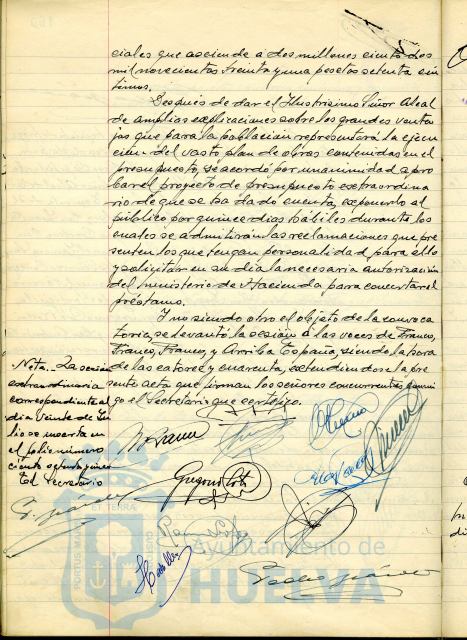 ciales que asciende a dos millones ciento dos
mil novecientas treinta y una pesetas setenta cén
timos.
Después de dar el Ilustrísimo Señor Alcal
de amplias explicaciones sobre los grandes venta
jas que para la población representará la ejecu
ción del vasto plan de obras contenidas en el
presupuesto, se acordó por unanimidad apro
bar el proyecto de presupuesto extraordina
rio de que se ha dado cuenta, exponerlo al
público por quince días hábiles durante los
cuales se admitirán las reclamaciones que pre
senten los que tengan personalidad para ello
y solicitar en su día la necesaria autorización
del Ministerio de Hacienda para concertar el
préstamo.
Y no siendo otro el objeto de la convoca
toria, se levantó la sesión a las voces de Franco,
Franco, Franco, y Arriba España, siendo la hora
de las catorce y cuarenta, extendiéndose la pre
sente acta que firman los señores concurrentes conmi
go el Secretario que certifico.
Nota.- La sesión
extraordinaria
correspondiente al
día veinte de Ju
lio se inserta en
el folio número
ciento
El Secretario
Gregorio
Pedro
PORTUS MARIS ET TERRAE
Ayuntamiento de
HUELVA